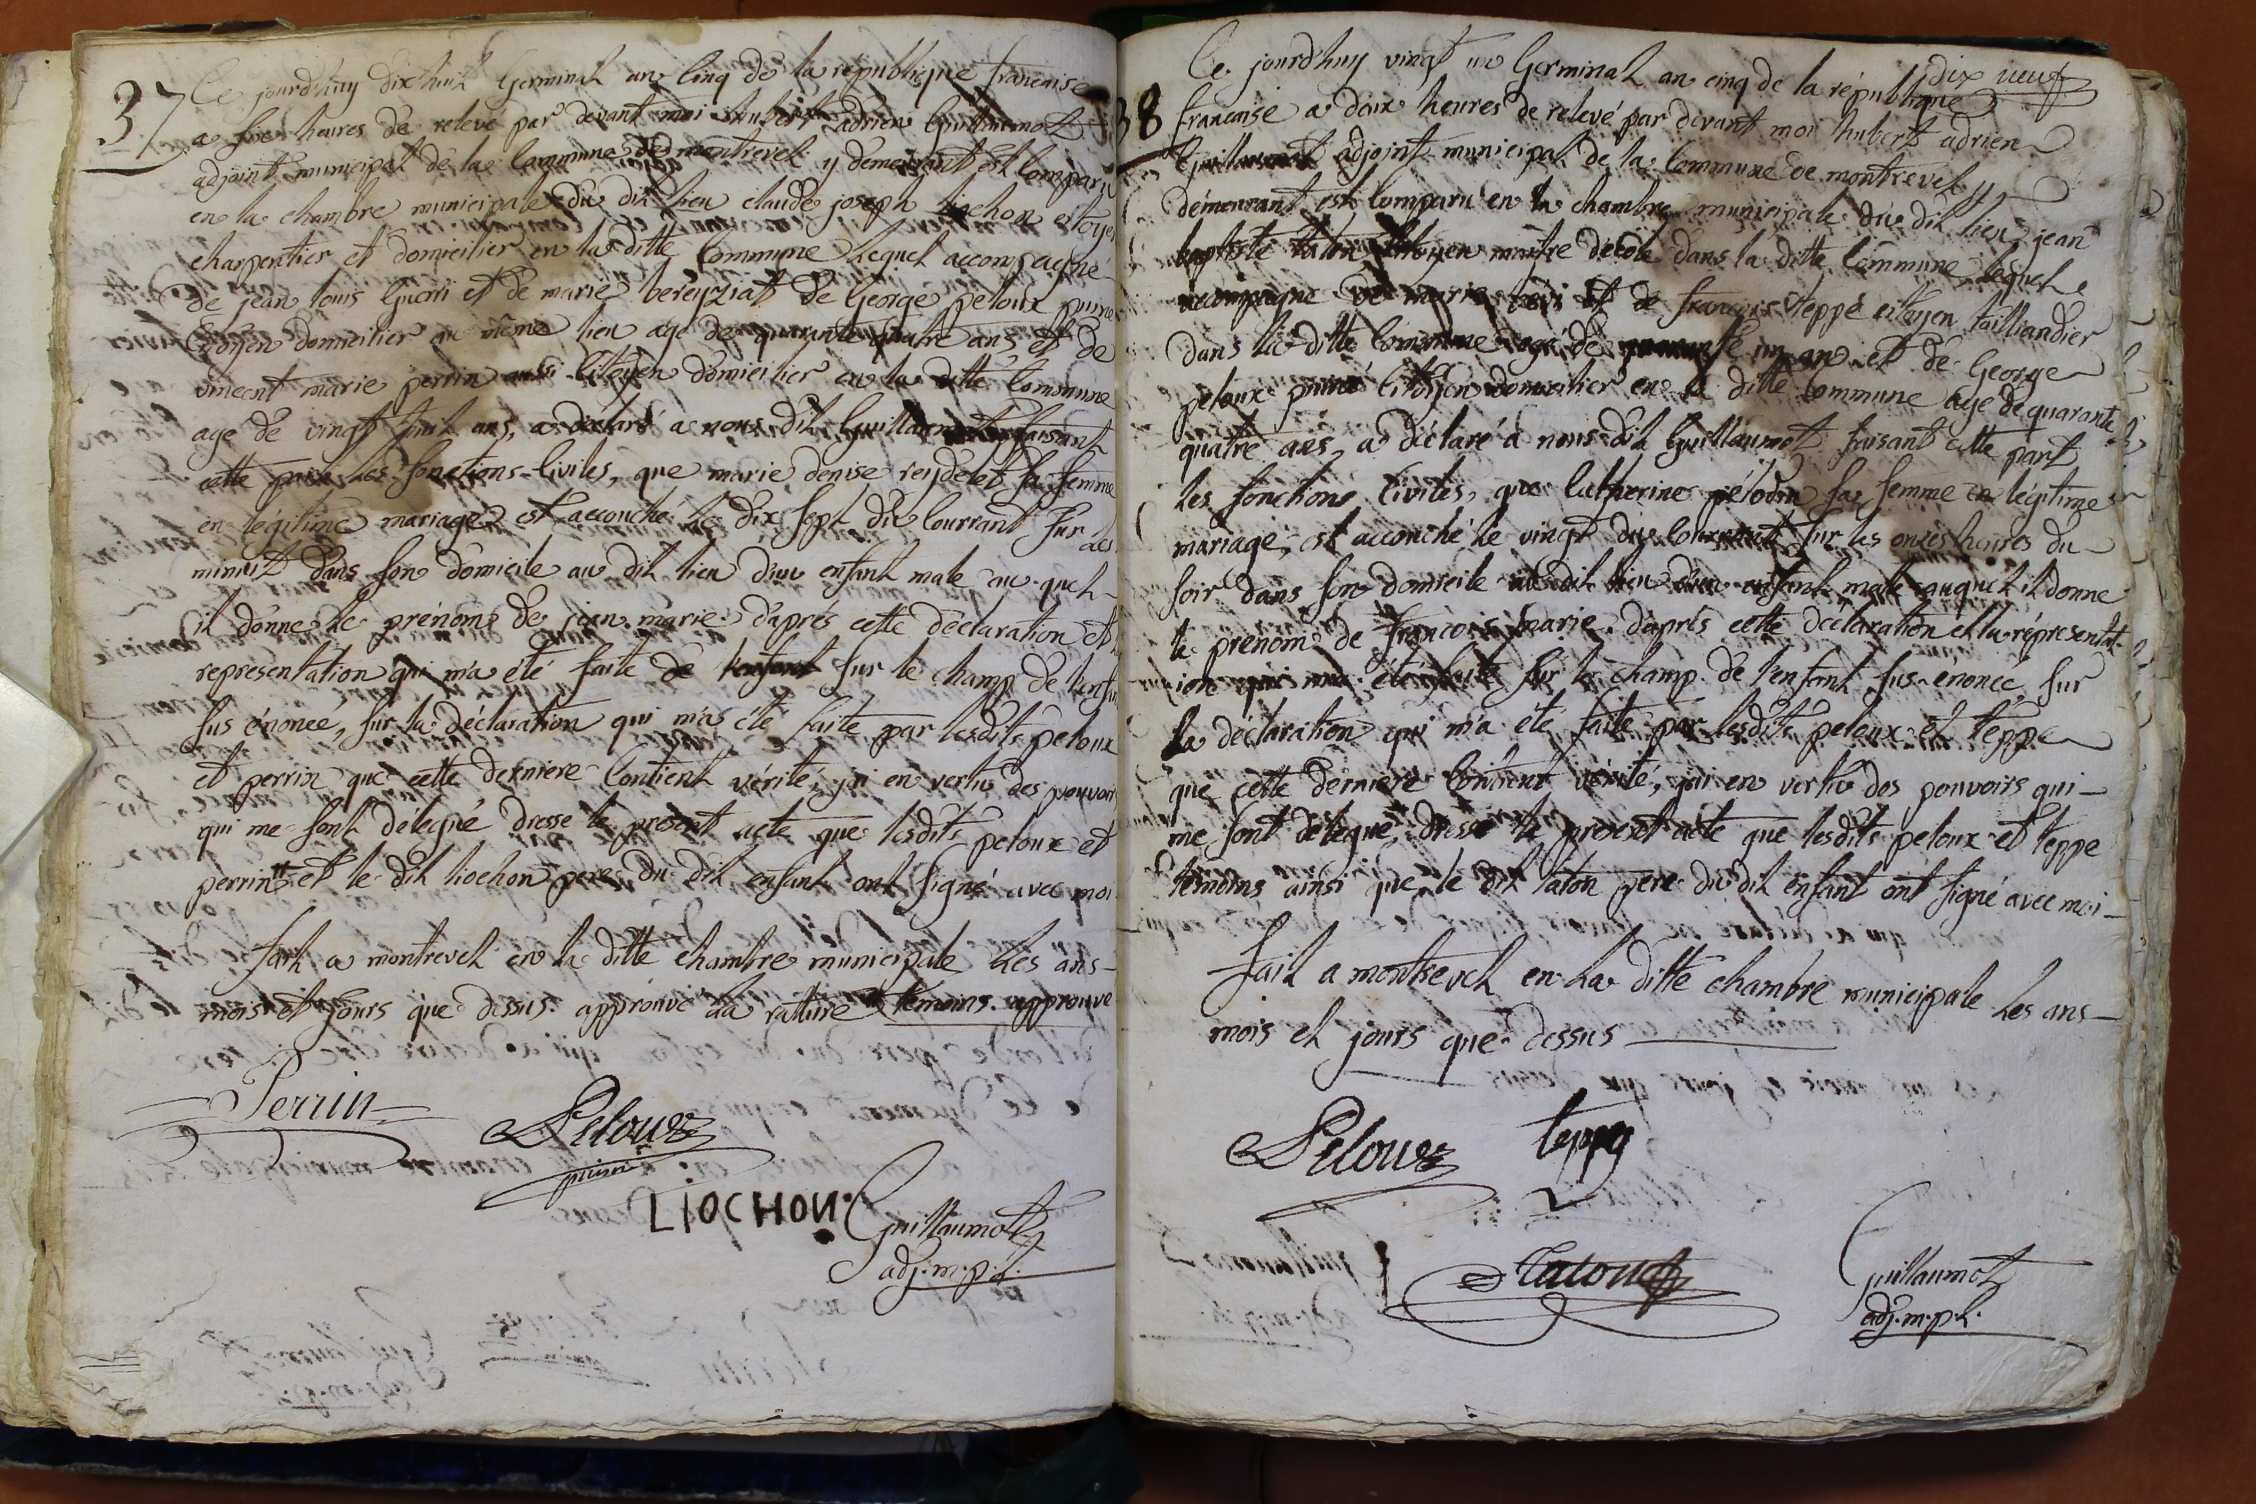 37
Ce jourdhuy dix huit Germinal an Cinq de la république francaise
a six heures de relevé par devant moi hubert adrien Guillaumot
adjoint municipal de la Commune de montrevel y demeurant est Comparu
en la chambre municipale du dit lieu claude joseph liochon citoyen
charpentier et domicilier en la ditte Commune Lequel accompagné
de jean louis Guerri et de marie bereyziat de George peloux puiné
Citoyen domicilier au même lieu agé de quarante quatre ans, et de
vincent marie perrin aussi Citoyen domicilier en la ditte Commune
age de vingt huit ans, a déclaré a nous dit Guillaumot faisant
cette part les fonctions Civiles, que marie denise reydelet sa femme
en légitime mariage est accouché le dix sept du Courrant sur les
minuit dans son domicile au dit lieu d'un enfant male au quel
il donne le prénoms de jean marie d'aprés cette déclaration et
representation qui m'a été faite de l'enfant sur le champ de l'enfant
sus énoncé, sur la déclaration qui m'a été faite par lesdits peloux
et perrin que cette derniere Contient vérité, jai en vertu des pouvoirs
qui me sont delegué dresse le present acte que lesdits peloux et
perrin et le dit liochon pere du dit enfant ont signé avec moi
fait a montrevel en la ditte chambre municipale Les ans
mois et jours que dessus. approuvé la rature témoins approuvé
Perrin
Peloux
puiné
LIOCHON
Guillaumot
adj. m.p.l.
dix neuf
38
Ce jourdhuy vingt un Germinal an cinq de la république
francaise a deux heures de relevé par devant moi hubert adrien
Guillaumot adjoint municipal de la Commune de montrevel y
démeurant est Comparu en la chambre municipale du dit lieu jean
baptiste taton Citoyen maitre décole dans la ditte Commune lequel
accompagne de marie et de francois teppé citoyen tailliandier
dans la ditte Commune agé de quarante un an et de George
peloux puiné Citoyen domicilier en la ditte Commune age de quarante
quatre ans, a déclaré a nous dit Guillaumot faisant cette part
les fonctions Civiles, que Catherine sa femme en légitime
mariage, est accouché le vingt du Courrant sur les onzes heures du
soir dans son domicile au dit lieu d'un enfant male auquel il donne
le prenom de francois marie, d'aprés cette déclaration et la réprésentat-
ion qui m'a été faite sur le champ de l'enfant sus-énoncé, sur
la déclaration qui m'a été faite par lesdits peloux et teppe
que cette derniere Contient vérité, jai en vertu des pouvoirs qui
me sont délégué dressé le present acte que lesdits peloux et teppe
témoins ainsi que le dit taton pere du dit enfant ont signé avec moi
fait a montrevel en la ditte chambre municipale les ans
mois et jours que dessus
Peloux
teppe
taton
Guillaumot
adj. m.p.l.